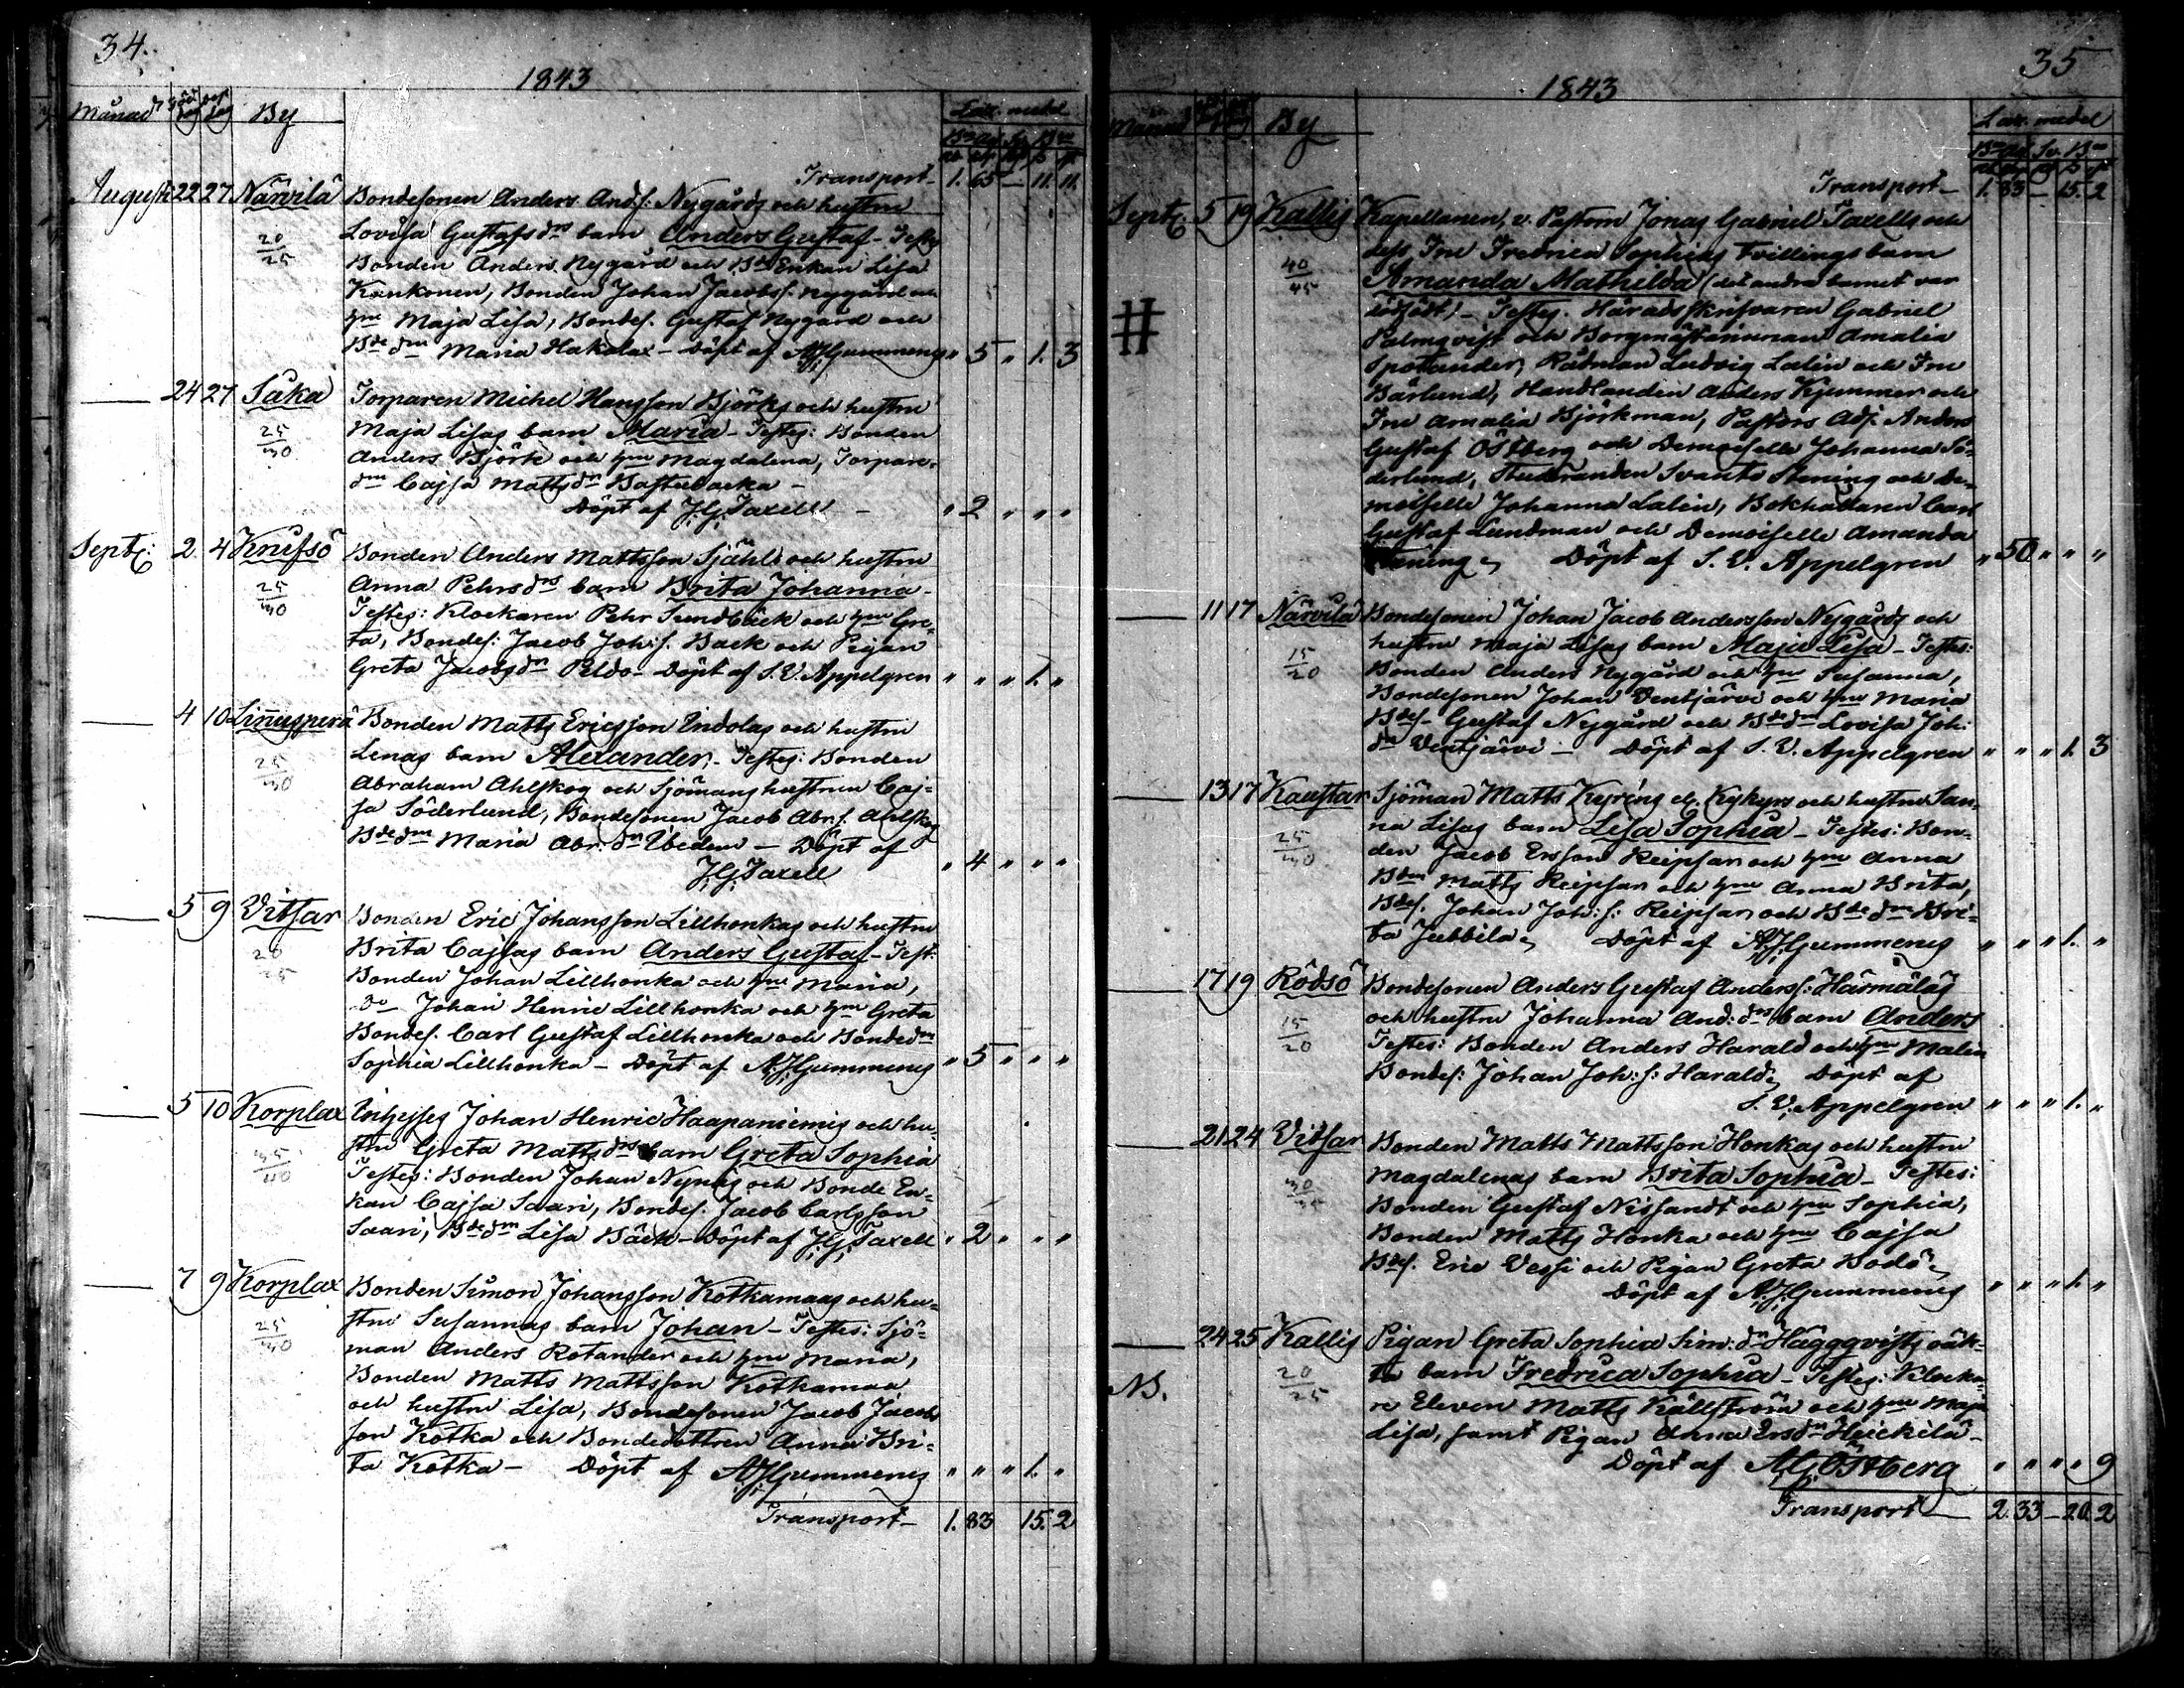 34.
1843
Månad Född dag Döpt dag By
Lax. medel
Transport 1. 65 — 11. 11.
August 22 27 Närvilä Bondesonen Anders Ands: Nygårds och hustru
Lovisa Gustafs drs barn Anders Gustaf - Testes
20/25 Bonden Anders Nygård och Bde Enkan Lisa
Kankonen, Bonden Johan Jacobss. Nygård och
hru Maja Lisa, Bondes. Gustaf Nygård och
Bde dm Maria Hakalax - Döpt af AJGummerus " 5 " 1. 3
— 24 27 Såka Torparen Michel Hansson Björks och hustru
25/30 Maja Lisas barn Maria - Testes: Bonden
Anders Björk och hru Magdalena, Torpare-
drn Cajsa Matts dr Bastubacka -
Döpt af J.G. Taxell - " 2 " " "
Septr: 2 4 Knifsö Bonden Anders Mattsson Själs och hustru
25/30 Anna Pehrs drs barn Brita Johanna -
Testes: Klockaren Pehr Sundbäck och hru Gre-
ta, Bondes: Jacob Joh:s. Back och Pigan
Greta Jacobs dr Peldo - Döpt af S. V. Appelgren " " " 1. "
— 4 10 Linnusperä Bonden Matts Ericsson Indolas och hustru
25/30 Lenas barn Alexander - Testes: Bonden
Abraham Ahlskog och Sjömans hustrun Caj-
sa Söderlund, Bondesonen Jacob Abr.s. Ahlskog
Bde drn Maria Abr. dr Ubedem - Döpt af
J.G. Taxell " 4 " " "
— 5 9 Vitsar Bonden Eric Johansson Lillhonkas och hustru
20/25 Brita Cajsas barn Anders Gustaf - Test:
Bonden Johan Lillhonka och hru Maria,
Do Johan Henric Lillhonka och hru Greta
Bondes. Carl Gustaf Lillhonka och Bondedrn
Sophia Lillhonka - Döpt af AJGummerus " 5 " " "
— 5 10 Korplax Inhyses Johan Henric Haapaniemis och hu-
35/40 stru Greta Matts drs barn Greta Sophia
Testes: Bonden Johan Nynäs och Bonde En-
kan Cajsa Saari, Bondes. Jacob Carlsson
Saari, Bde drn Lisa Bäck - Döpt af J.G. Taxell " 2 " " "
— 7 9 Korplax Bonden Simon Johansson Kotkamaas och hu-
25/30 stru Susannas barn Johan - Testes: Sjö-
man Anders Rotander och hru Maria,
Bonden Matts Mattsson Kotkamaa
och hustru Lisa, Bondesonen Jacob Jacobs
son Kotka och Bondedottren Anna Bri-
ta Kotka - Döpt af AJGummerus " " " 1. "
Transport - 1. 83 15. 2
35
1843
Månad By
Lax. medel
Transport - 1. 83 - 15. 2
Septr. 5 19 Kallis Kapellanen, v. Pastorn Jonas Gabriel Taxells och
dess Fru Fredrica Sophias Tvillings barn
40/45 Amanda Mathilda (det andra barnet var
dödfödt) - Testes. Häradsskrifvaren Gabriel
# Palmqvist och Borgmästarinnan Amalia
Spolander, Rådman Ludvig Lalin och Fru
Bärlund, Handlanden Anders Kjemmer och
Fru Amalia Björkman, Pastors Adj. Anders
Gustaf Östberg och Demoiselle Johanna Sö-
derlund, Studeranden Svante Stening och De-
moiselle Johanna Lalin, Bokhållaren Carl
Gustaf Lundman och Demoiselle Amanda
Stening, Döpt af S. V. Appelgren " 50 " " "
— 11 17 Närvilä Bondesonen Johan Jacob Andersson Nygårds och
hustru Maja Lisas barn Maja Lisa - Testes:
15/20 Bonden Anders Nygård och hru Susanna,
Bondesonen Johan Ventjärvi och hru Maria
Bdes. Gustaf Nygård och Bde drn Lovisa Joh:
dr Ventjärvi - Döpt af S. V. Appelgren " " " 1. 3
— 13 17 Kaustar Sjöman Matts Kyrings el. Kykyrs och hustru San-
na Lisas barn Lisa Sophia - Testes: Bon-
25/30 den Jacob Ersson Reipsar och hru Anna
Bden Matts Reipsar och hru Anna Brita,
Bdes. Johan Joh:s: Reipsar och Bde drn Bri-
ta Jubbila, Döpt af AJGummerus " " " 1. "
— 17 19 Rödsö Bondesonen Anders Gustaf Anderss: Härmäläs
och hustru Johanna And: drs barn Anders
15/20 Testes: Bonden Anders Harald och hru Malin
Bondes: Johan Joh:s: Harald, Döpt af
S. V. Appelgren " " " 1. "
— 21 24 Vitsar Bonden Matts Mattsson Honkas och hustru
Magdalenas barn Brita Sophia - Testes:
30/35 Bonden Gustaf Nissandt och hru Sophia,
Bonden Matts Honka och hru Cajsa
Bdes. Eric Vessi och Pigan Greta Bodö,
Döpt af AJGummerus " " " 1. "
— 24 25 Kallis Pigan Greta Sophia Sim: dr Häggqvists oäk-
20/25 ta barn Fredrica Sophia - Testes: Klocka-
NB. re Eleven Matts Källström och hru Maja
Lisa, samt Pigan Anna Ersdr Heickilä -
Döpt af AGÖstberg " " " " 9
Transport 2. 33 - 20. 2